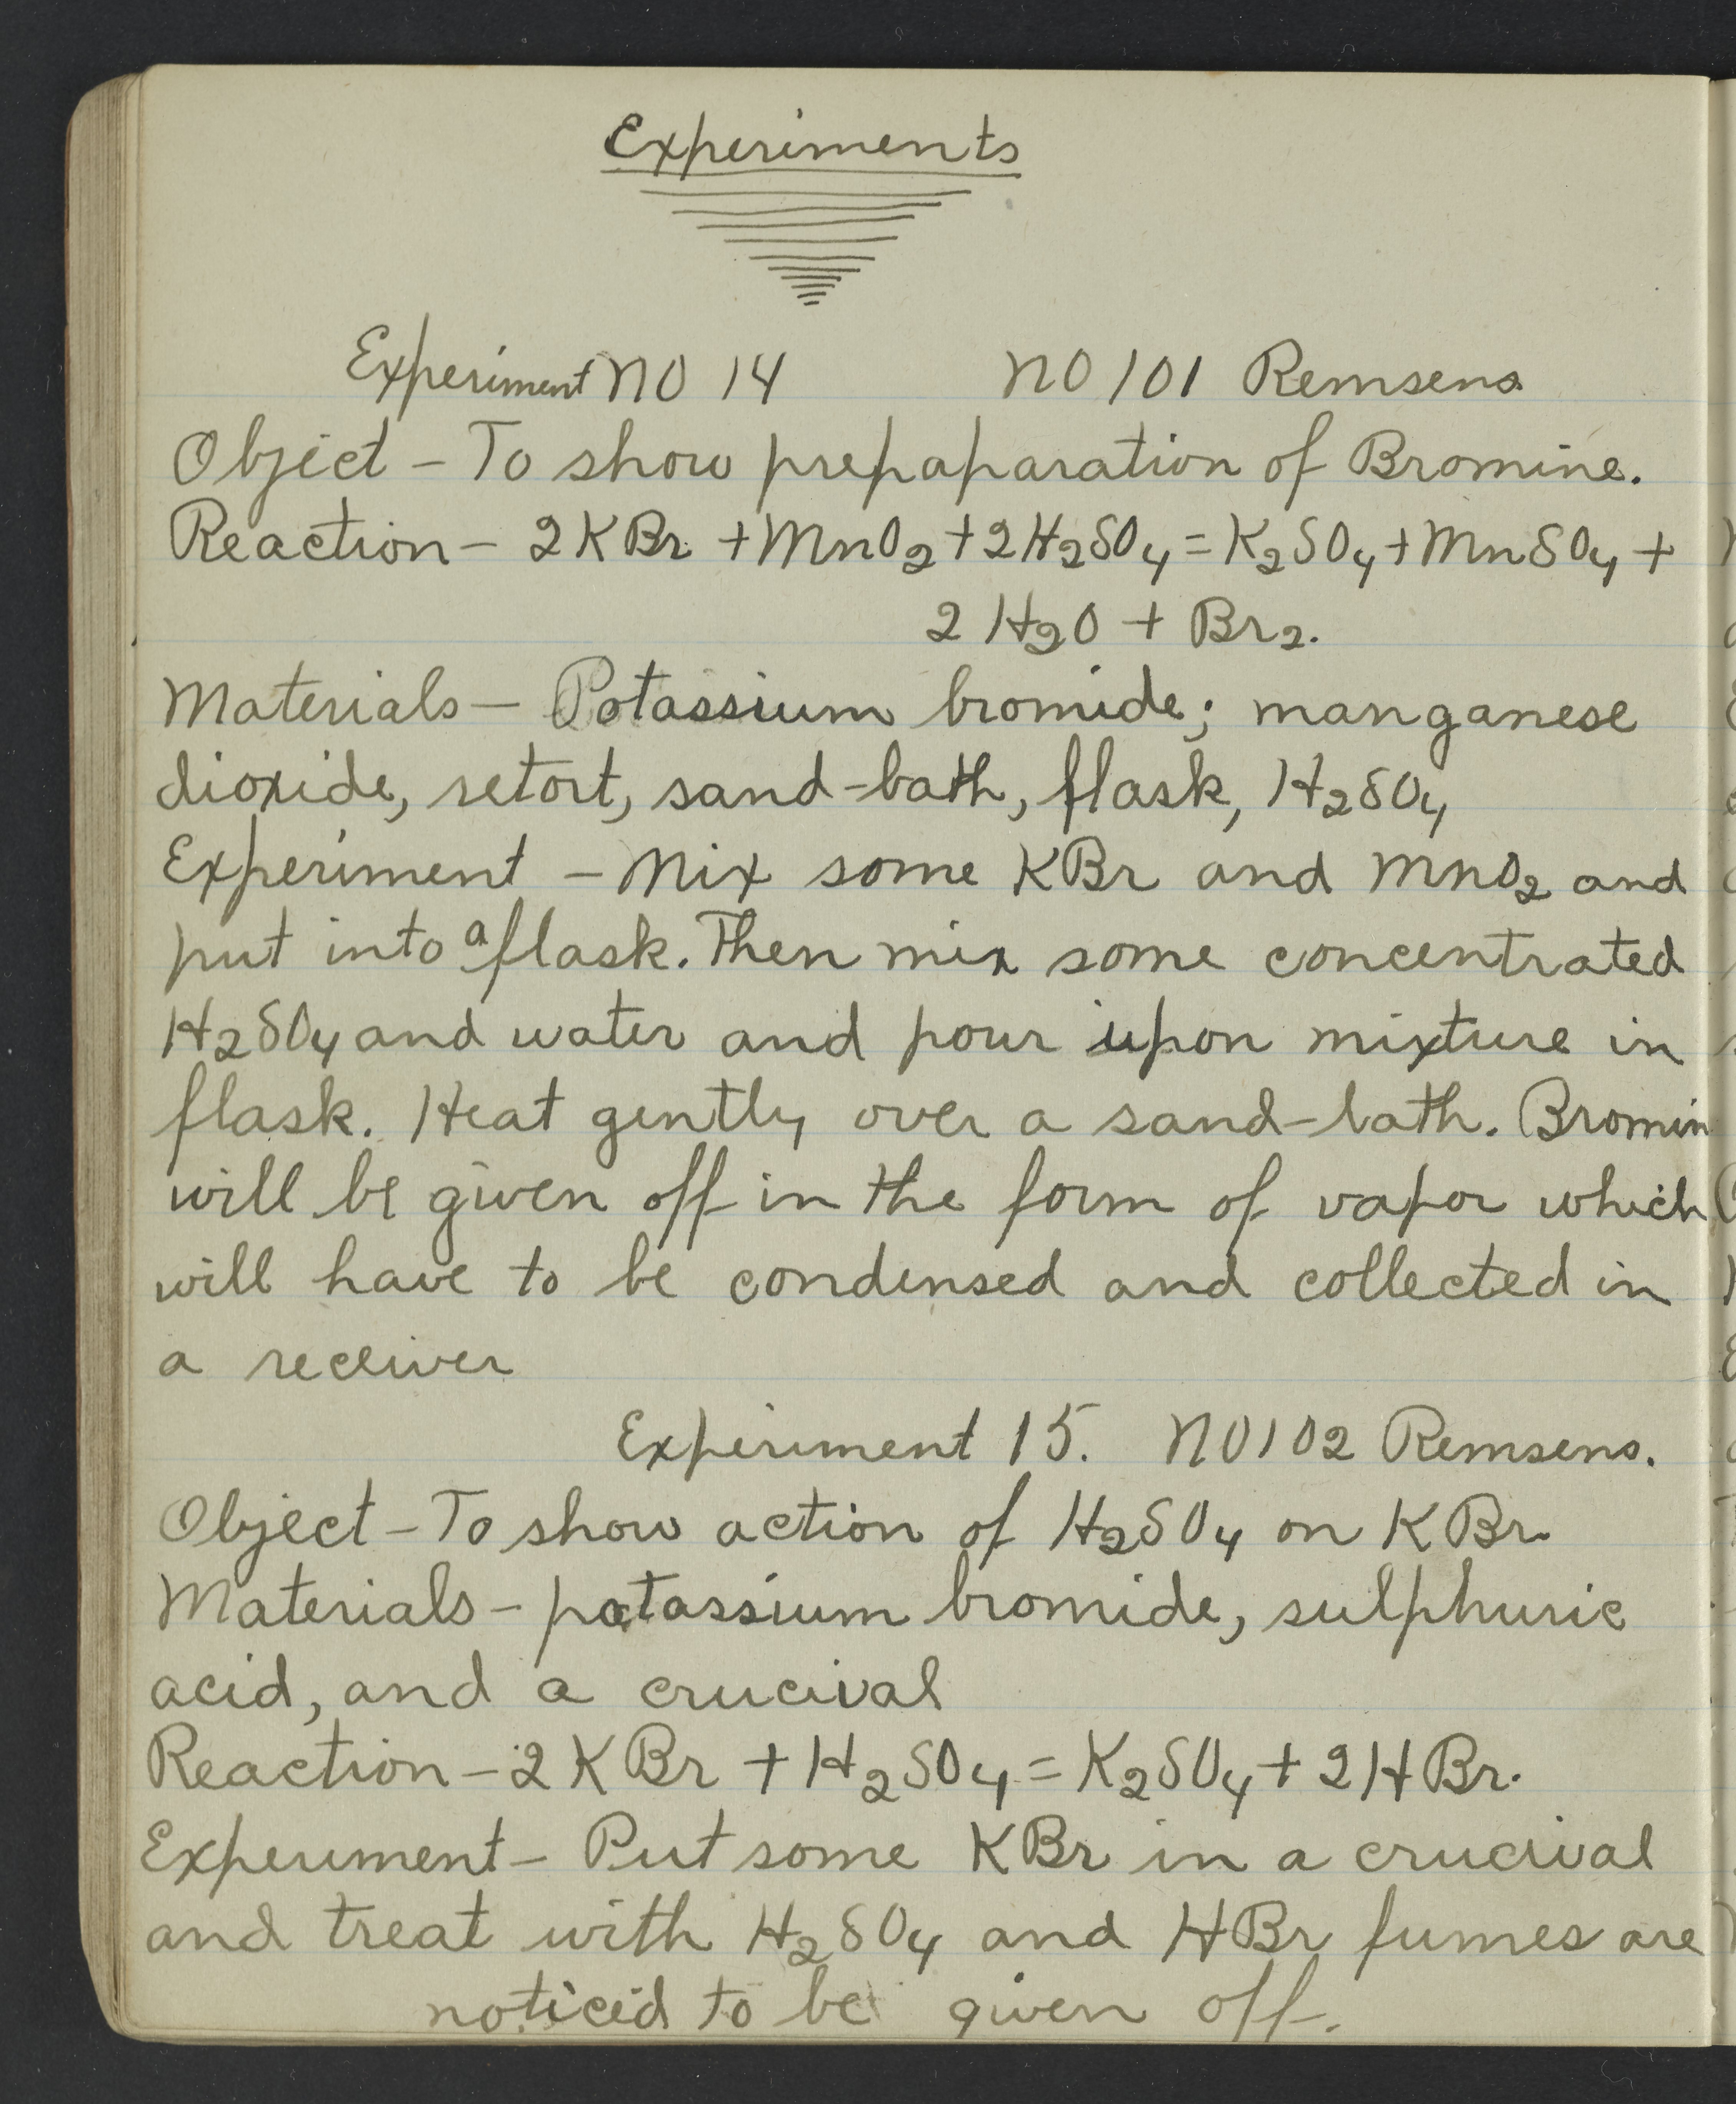 Experiments
Experiment NO 14 NO 101 Remsens
Object - To show prepaparation of Bromine.
Reaction - 2KBr + MnO2 + 2H2SO4 = K2SO4 + MnSO4 +
2 H2O + Br2.
Materials - Potassium bromide; manganese
dioxide, retort, sand-bath, flask, H2SO4
Experiment - Mix some KBr and MnO2 and
put into a flask. Then mix some concentrated
H2SO4 and water and pour upon mixture in
flask. Heat gently over a sand-bath. Bromin
will be given off in the form of vapor which
will have to be condensed and collected in
a receiver
Experiment 15. NO 102 Remsens.
Object - To show action of H2SO4 on KBr.
Materials - potassium bromide, sulphuric
acid, and a crucival
Reaction - 2KBr + H2SO4 = K2SO4 + 2HBr.
Experiment - Put some KBr in a crucival
and treat with H2SO4 and HBr fumes are
noticed to be given off.